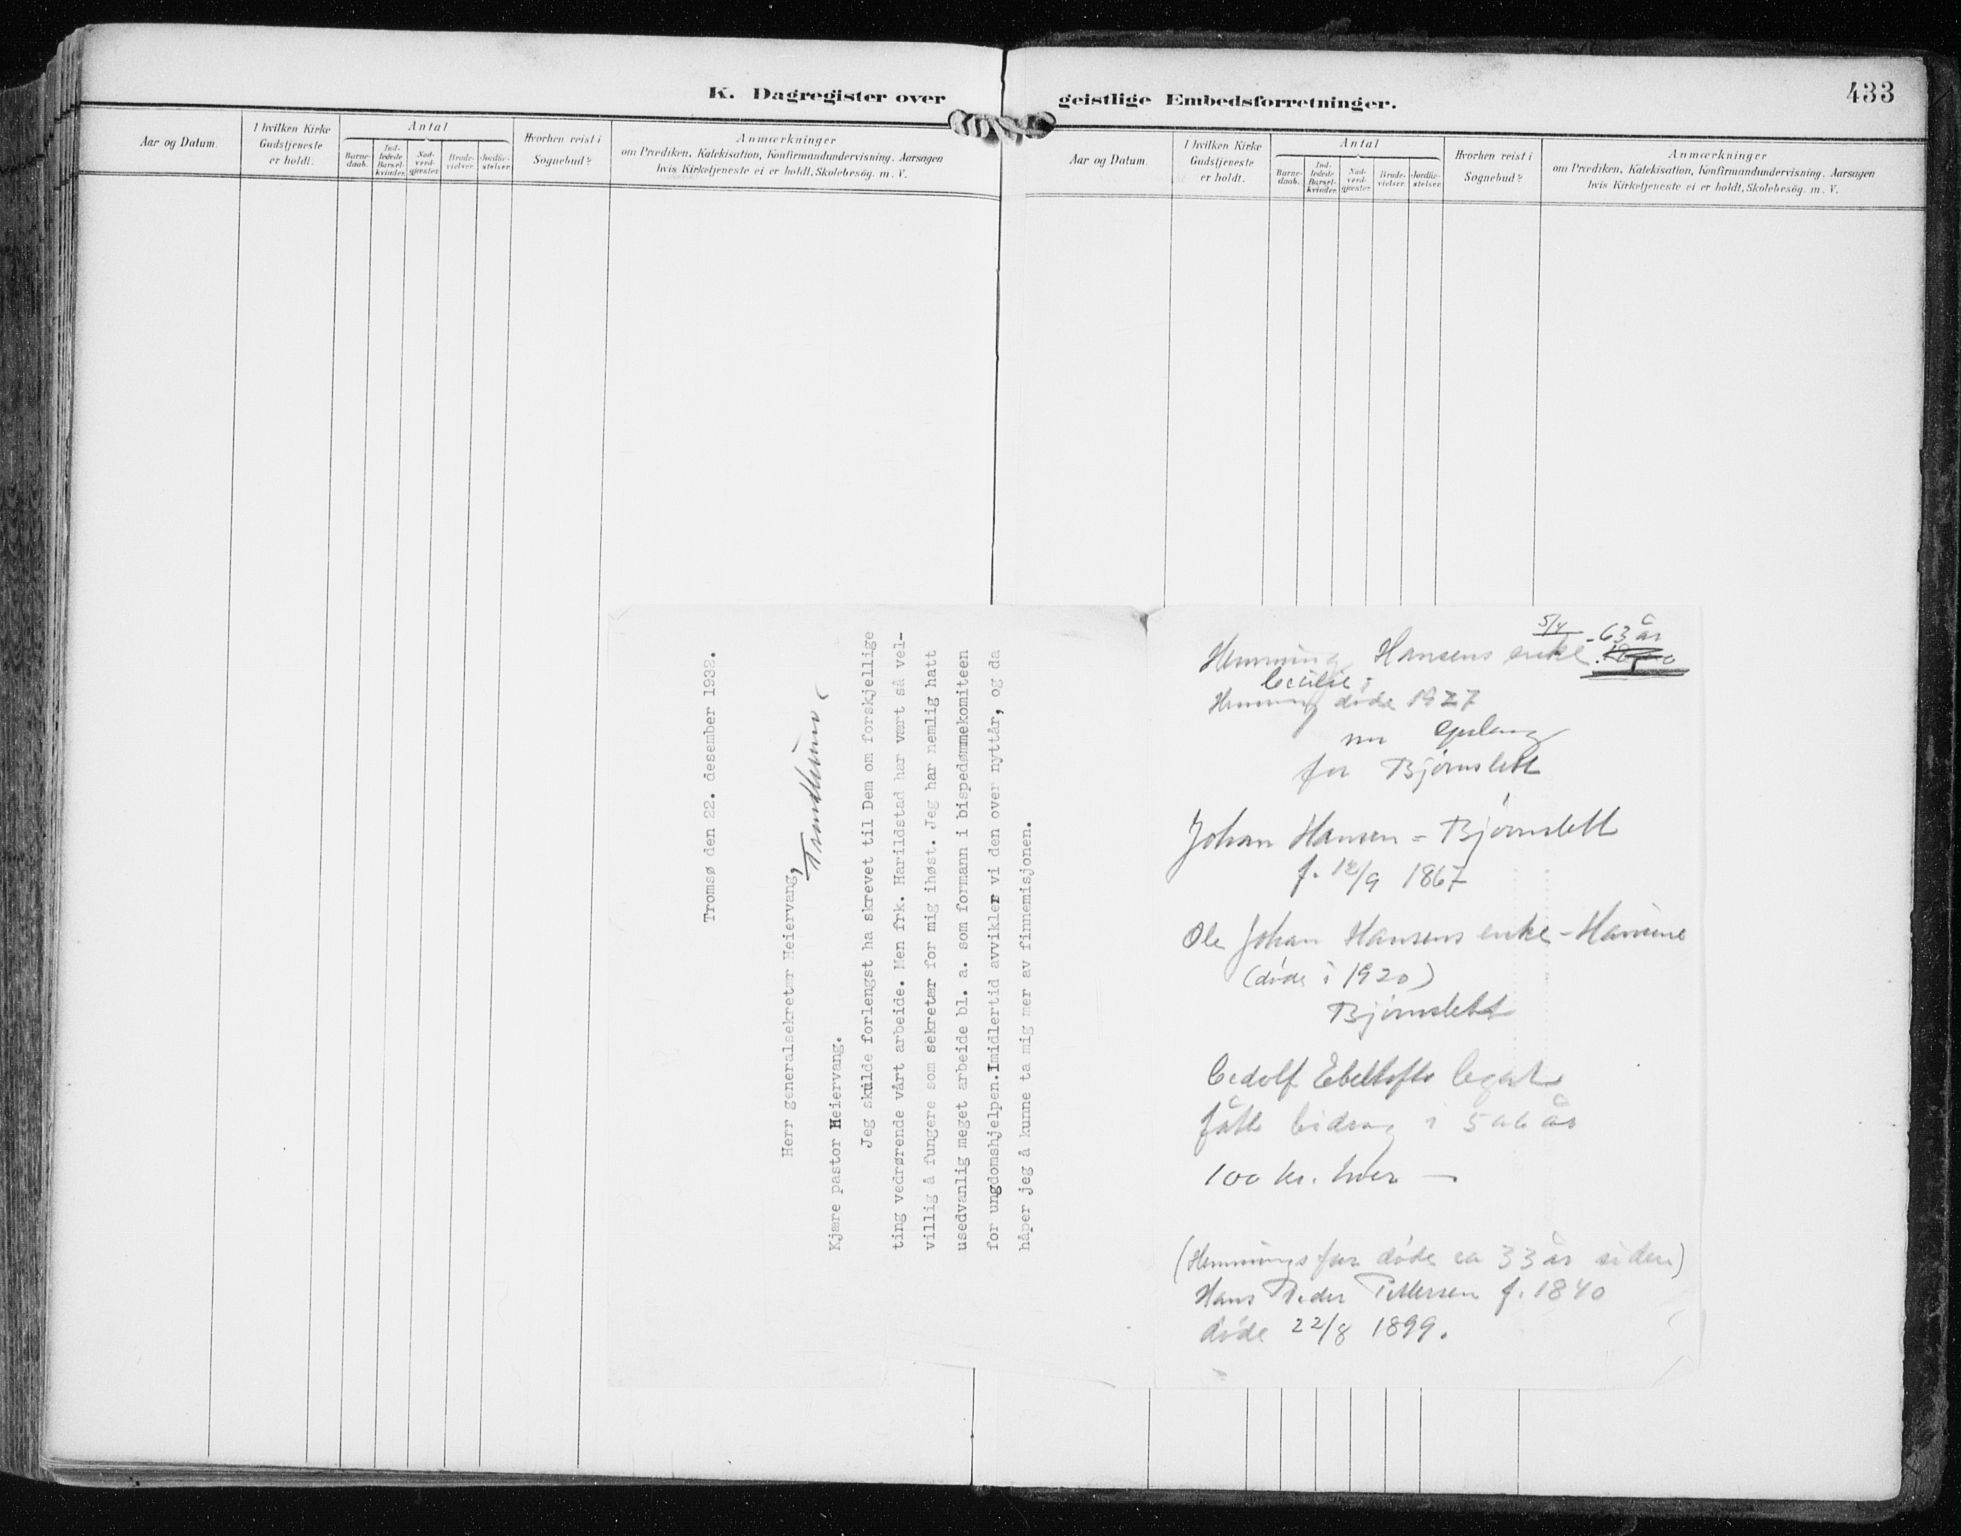 K. Dagregister over geistlige Embedsforretninger.
433
Aar og Datum.
I hvilken Kirke
Gudstjeneste
er holdt.
Antal
Barne-
daab.
Ind-
ledede
Barsel-
kvinder.
Nad-
verd-
gjester.
Brude-
vielser.
Jordfæ-
stelser.
Hvorhen reist i
Sognebud?
Anmærkninger
om Prædiken, Katekisation, Konfirmandundervisning. Aarsagen
hvis Kirketjeneste ei er holdt, Skolebesøg. m. V.
Aar og Datum.
I hvilken Kirke
Gudstjeneste
er holdt.
Antal
Barne-
daab.
Ind-
ledede
Barsel-
kvinder.
Nad-
verd-
gjester.
Brude-
vielser.
Jordfæ-
stelser.
Hvorhen reist i
Sognebud?
Anmærkninger
om Prædiken, Katekisation, Konfirmandundervisning. Aarsagen
hvis Kirketjeneste ei er holdt, Skolebesøg. m. V.
Tromsø den 22. desember 1932.
Herr generalsekretær Heiervang,
Trondheim
Kjære pastor Heiervang.
Jeg skulde forlengst ha skrevet til Dem om forskjellige
ting vedrørende vårt arbeide. Men frk. Harildstad har vært så vel-
villig å fungere som sekretær for mig ihøst. Jeg har nemlig hatt
usedvanlig meget arbeide bl. a. som formann i bispedømmekomiteen
for ungdomshjelpen. Imidlertid avvikler vi den over nyttår, og da
håper jeg å kunne ta mig mer av finnemisjonen.
5/4
63 år
Henning Hansens enke
Cecilie
Henning døde 1927
for Bjørnslett
Johan Hansen - Bjørnslett
f. 12/9 1867
Ole Johan Hansens enke - Hansine
(døde i 1920)
Bjørnslett
Ebeltofts legat
fått bidrag i 5 a 6 år
100 kr. hver
(Hennings far døde ca 33 år siden)
Hans Peder Pettersen f. 1840
døde 22/8 1899.